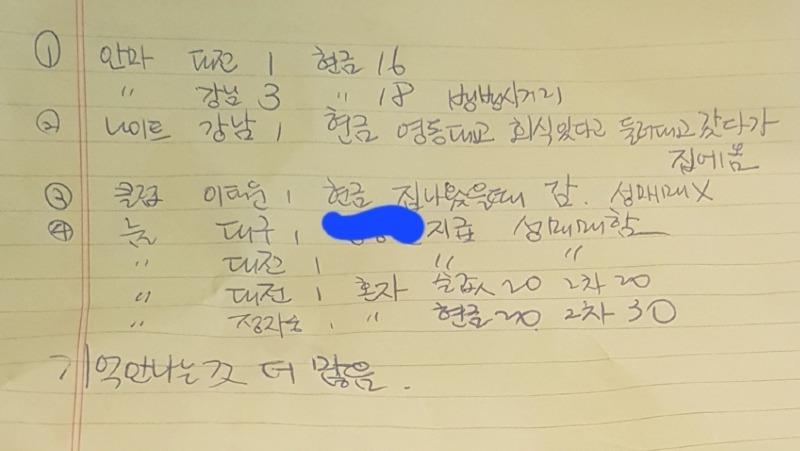 ① 안마 대전 1 현금 16
〃 강남 3 〃 18 뱅뱅사거리
② 나이트 강남 1 현금 영동대교 회식있다고 둘러대고 갔다가
집에옴
③ 클럽 이태원 1 현금 집나왔을때 감. 성매매X
④ 룸 대구 1 지급 성매매함
〃 대전 1 〃 〃
〃 대전 1 혼자 술값 20 2차 20
〃 1 〃 현금 20 2차 30
기억안나는것 더 많음.